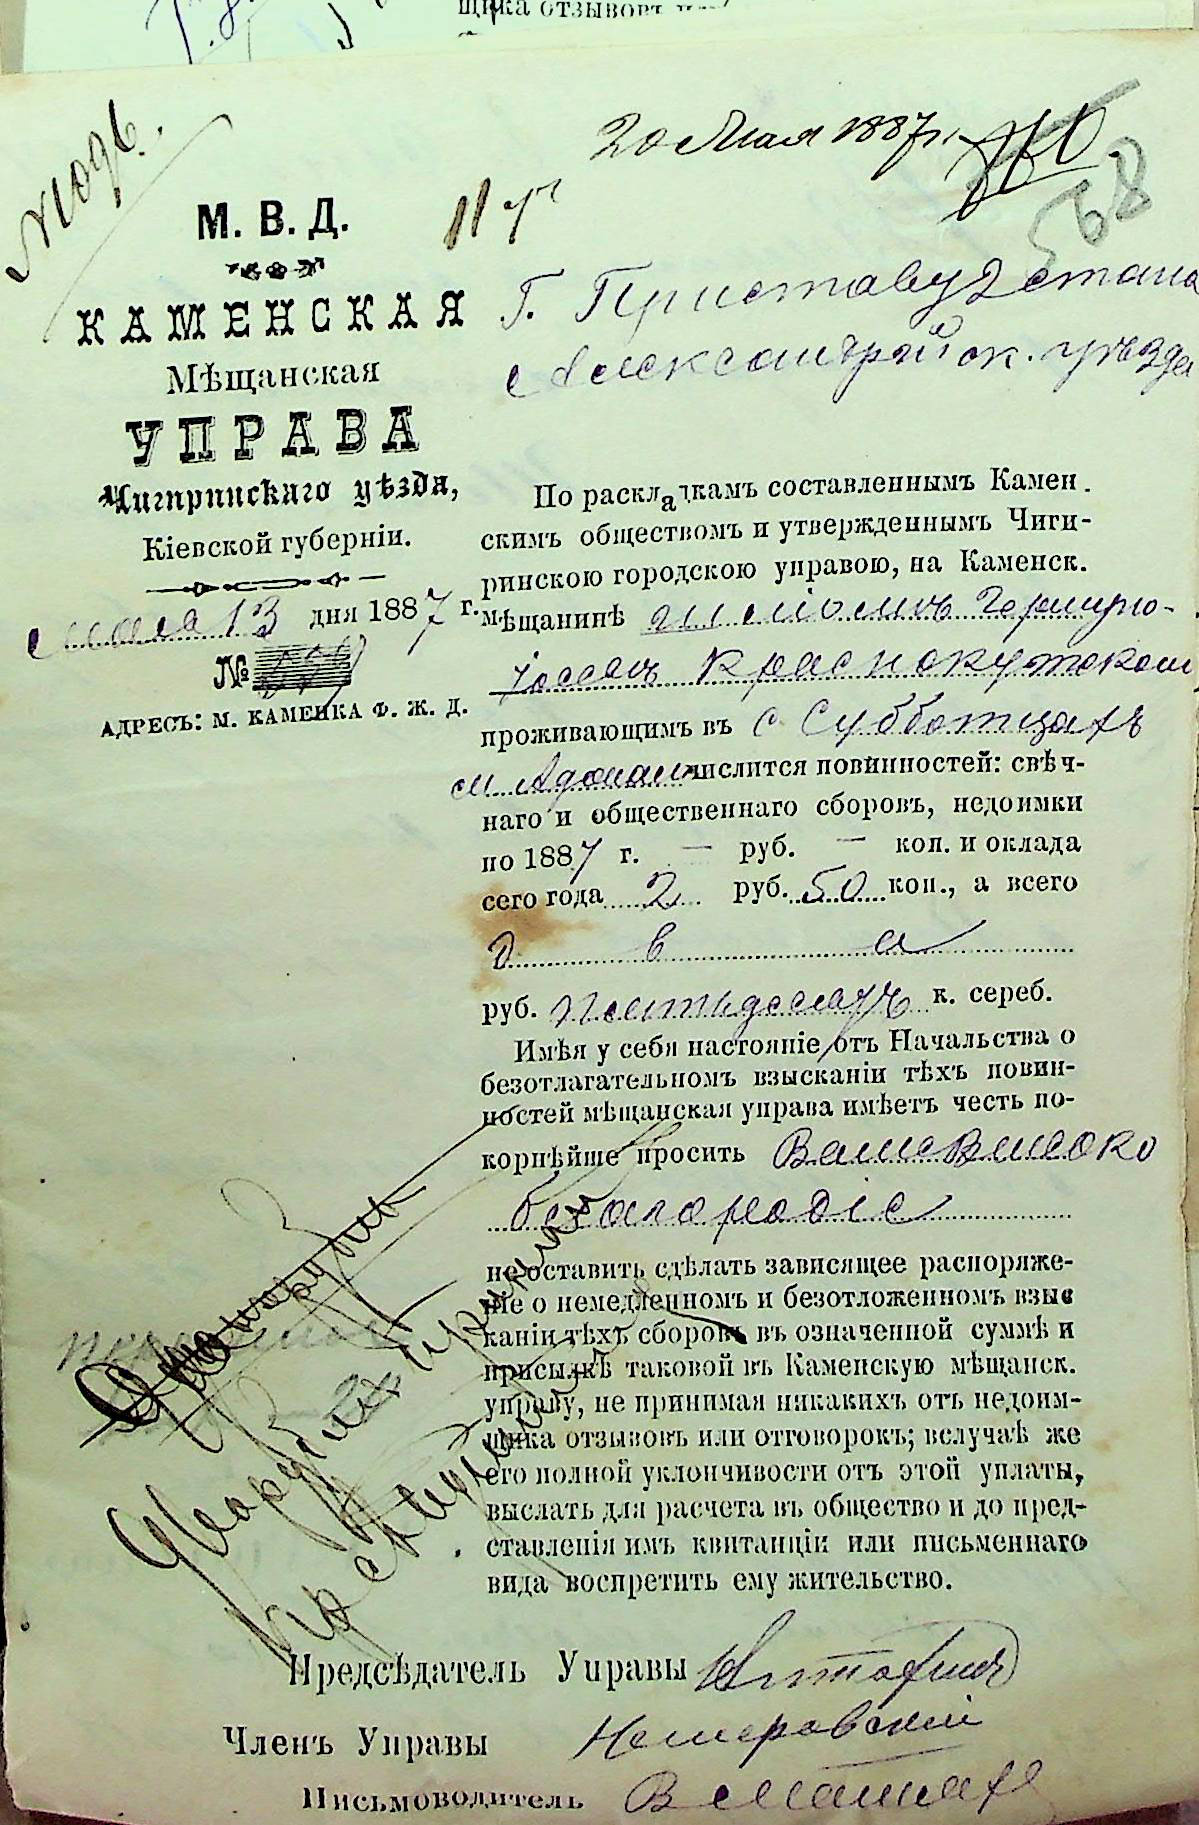 щика отзывовъ или
20 Мая 1887 г.
568
М. В. Д.
КАМЕНСКАЯ
Мѣщанская
УПРАВА
Чигиринскаго уѣзда,
Кіевской губерніи.
Мая 13 дня 1887 г.
№
АДРЕСЪ: М. КАМЕНКА Ф. Ж. Д.
Г. Приставу 2 стана
Александрійск. уѣзда
По раскладкамъ составленнымъ Камен.
скимъ обществомъ и утвержденнымъ Чиги-
ринскою городскою управою, на Каменск.
мѣщанинѣ
Краснокутскомъ
проживающимъ въ с Субботцахъ
числится повинностей: свѣч-
наго и общественнаго сборовъ, недоимки
по 1887 г. — руб. — коп. и оклада
сего года 2 руб. 50 коп., а всего
два
руб. пятьдесятъ к. сереб.
Имѣя у себя настояніе отъ Начальства о
безотлагательномъ взысканіи тѣхъ повин-
ностей мѣщанская управа имѣетъ честь по-
корнѣйше просить Ваше Высоко
благородіе
не оставить сдѣлать зависящее распоряже-
ніе о немедленномъ и безотложенномъ взыс
каніи тѣхъ сборовъ въ означенной суммѣ и
присылкѣ таковой въ Каменскую мѣщанск.
управу, не принимая никакихъ отъ недоим-
щика отзывовъ или отговорокъ; вслучаѣ же
его полной уклончивости отъ этой уплаты,
выслать для расчета въ общество и до пред-
ставленія имъ квитанціи или письменнаго
вида воспретить ему жительство.
Предсѣдатель Управы
Членъ Управы
Письмоводитель